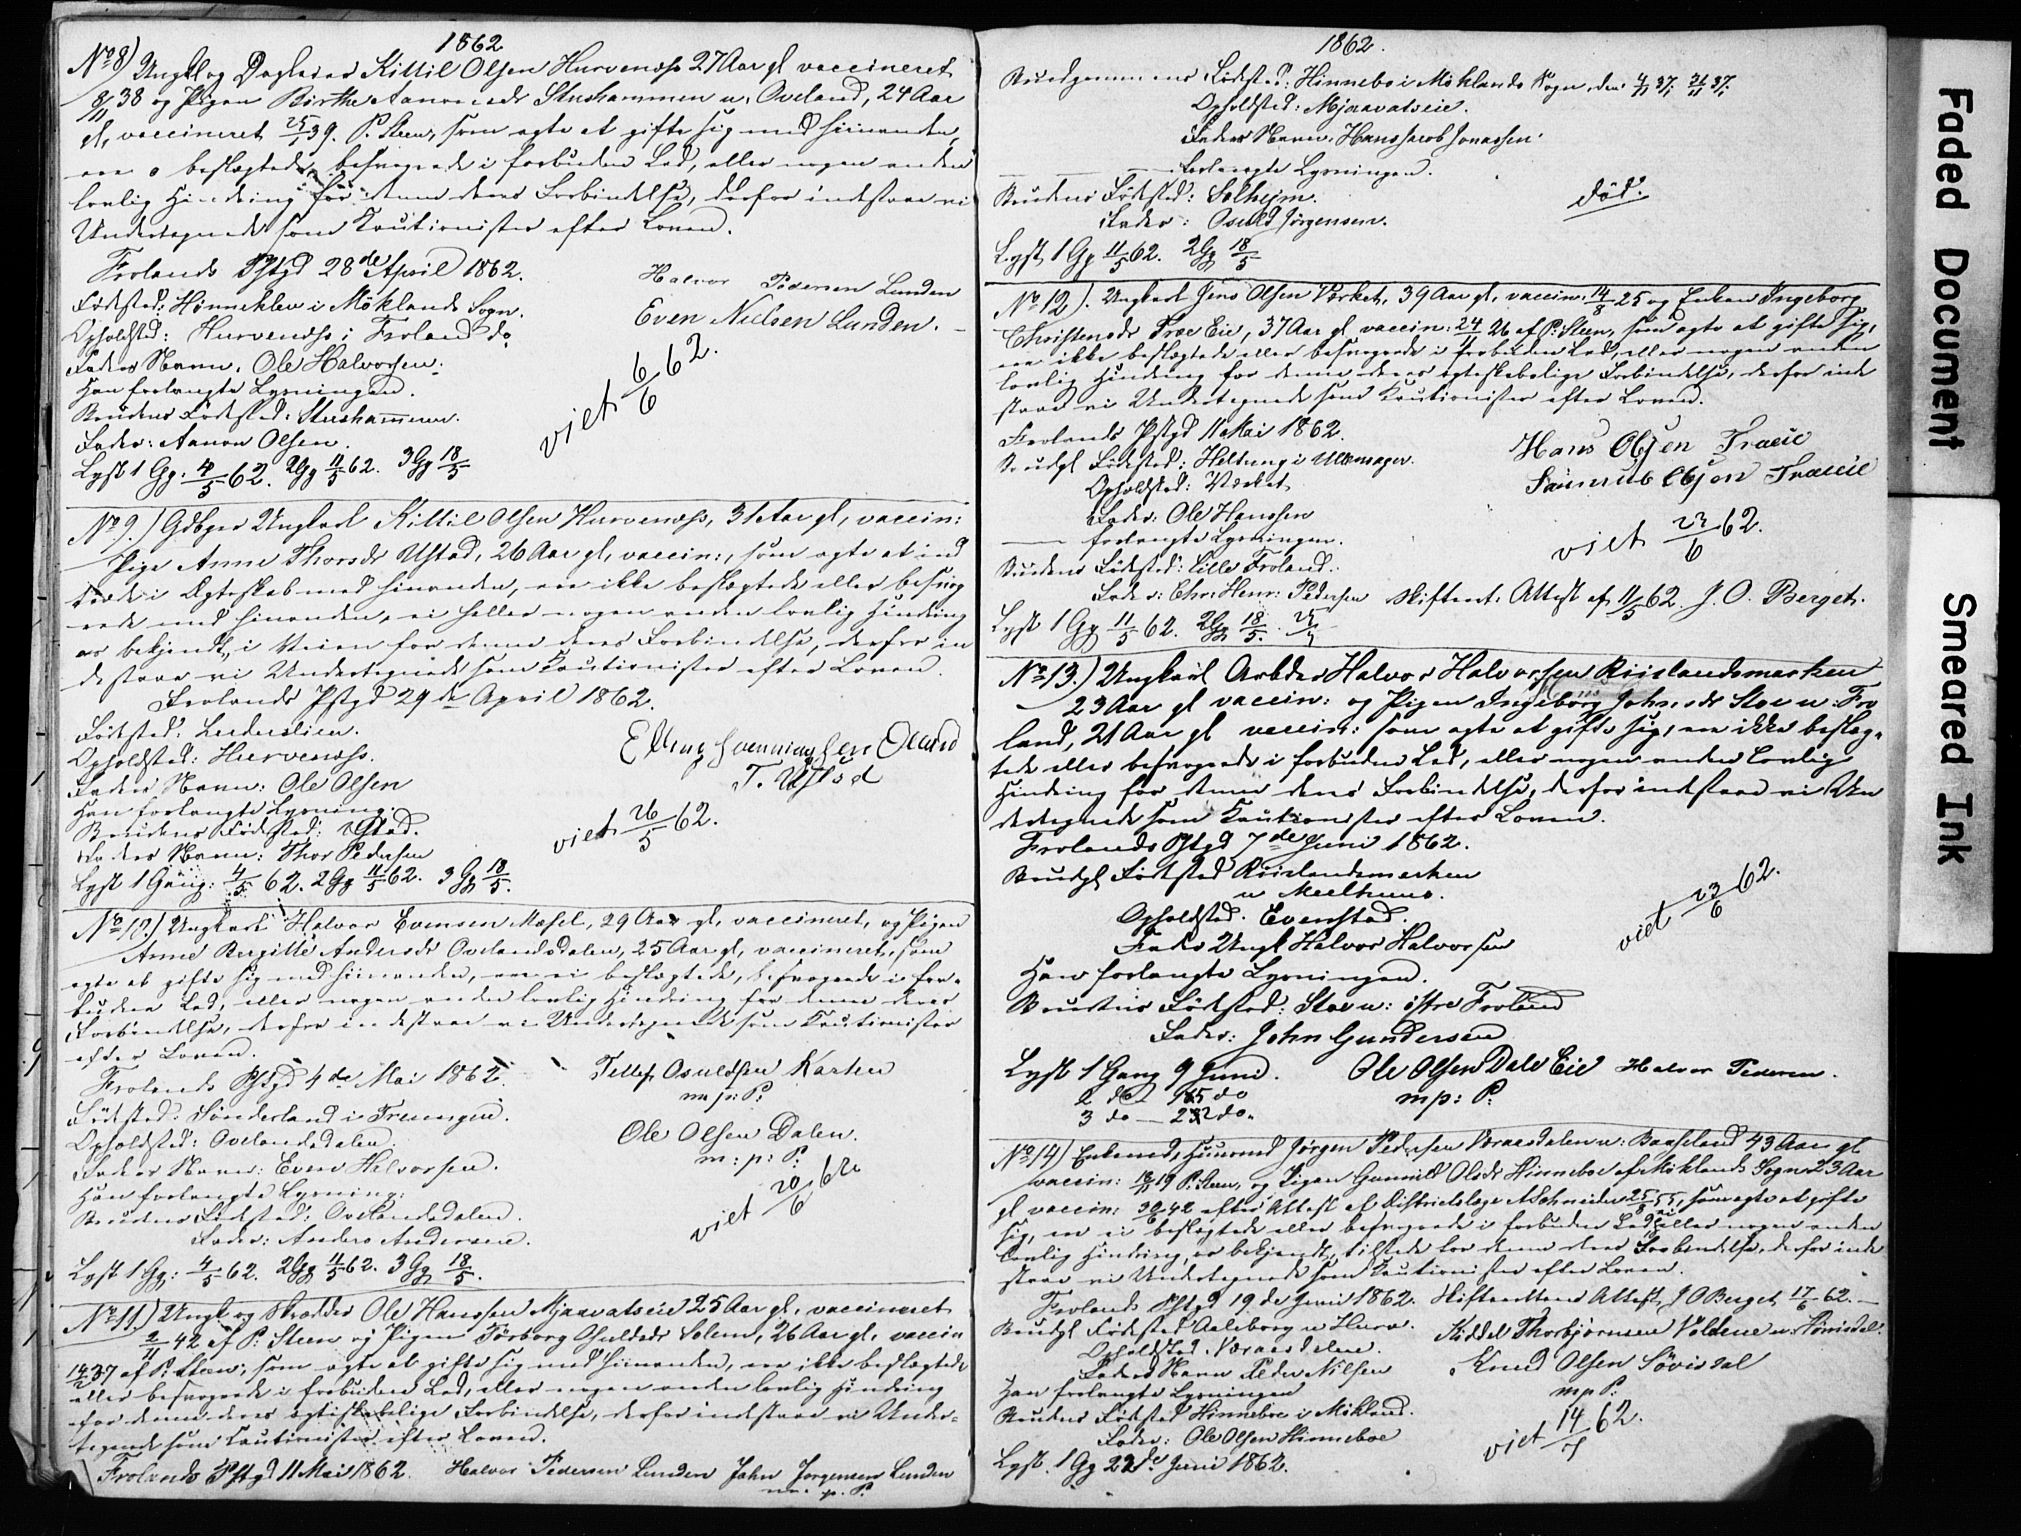 1862
No 8) Ungk og Dagleier Kittil Olsen Hurvenæss 27 Aar gl vaccineret
8/11 38 og Pigen Birthe Aanonsdr Stushammeren u. Oveland, 24 Aar
gl, vaccineret 25/1 39. P. Steen, som agte at gifte sig med hinanden,
ere ei beslægtede, besvogrede i forbuden Led, eller nogen anden
lovlig Hindring for denne deres Forbindelse, derfor indestaae vi
Undertegnede som Kautionister efter Loven.
Frolands Pstgd 28de April 1862.
Halvor Pedersen Lunden
Even Nielsen Lunden.
Fødested: Hinneklev i Møklands Sogn.
Opholdsted: Hurvenæss i Froland do
Faders Navn: Ole Halvorsen.
Han forlangte Lysningen.
Brudens Fødested: Stushammeren.
Fader: Aanon Olsen.
viet 6/6 62.
Lyst 1 Gg. 4/5 62. 2 Gg 11/5 62. 3 Gg 18/5
No 9.) Gdbger Ungkarl Kittil Olsen Hurvenæss, 31 Aar gl, vaccin:
Pige Anne Thorsdr Ufstad, 26 Aar gl, vaccin:, som agte at ind
træde i Ægteskab med hinanden, ere ikke beslægtede eller besvog
rede med hinanden, ei heller nogen anden lovlig Hindring
er bekjendt, i Veien for denne deres Forbindelse, derfor in
destaae vi Undertegnede som Kautionister efter Loven.
Frolands Pstgd 29de April 1862.
Fødested: Lederslien.
Opholdsted: Hurvenæss.
Faders Navn: Ole Olsen
T. Ufstad
Han forlangte Lysning.
Brudens Fødested: Ufstad.
Faders Navn: Thor Pedersen
viet 26/5 62.
Lyst 1 Gang: 4/5 62. 2 Gg 11/5 62. 3 Gg 18/5.
No 10.) Ungkarl Halvor Evensen Mæsel, 29 Aar gl, vaccineret, og Pigen
Anne Birgitte Andersdr Ovelandsdalen, 25 Aar gl, vaccineret, som
agte at gifte sig med hinanden, ere ei beslægtede, besvogrede i for-
buden Led, eller nogen anden lovlig Hindring for denne deres
Forbindelse, derfor indestaae vi Undertegnede som Kautionister
efter Loven.
Frolands Pstgd 4de Mai 1862.
Tellef Osuldsen Karten
m: p: P:
Fødested: Sønderland i Treungen.
Opholdsted: Ovelandsdalen.
Ole Olsen Dalen.
m: p: P:
Faders Navn: Even Halvorsen.
Han forlangte Lysning.
Brudens Fødested: Ovelandsdalen.
Fader: Anders Andersen.
viet 20/6 62
Lyst 1 Gg: 4/5 62. 2 Gg 11/5 62. 3 Gg 18/5.
No 11.) Ungk og Skrædder Ole Hanssen Mjaavatseie 25 Aar gl, vaccineret
2/11 42 af P: Steen og Pigen Torborg Osuldsdr Solem, 26 Aar gl, vaccin
14/2 37 af P: Steen, som agte at gifte sig med hinanden, ere ikke beslægtede
eller besvogrede i forbuden Led, eller nogen anden lovlig Hindring
for denne deres ægteskabelige Forbindelse, derfor indestaae vi Under-
tegnede som Kautionister efter Loven.
Frolands Pstgd 11 Mai 1862. Halvor Pedersen Lunden John Jørgensen Lunden
m. p. P.
1862.
Brudgommens Fødested: Hinneboe i Møklands Sogn, den 4/11 37,
Opholdsted: Mjaavatseie.
Faders Navn: Hans Jacob Jonassen.
forlangte Lysningen.
Brudens Fødested: Solhejm.
død.
Fader: Osuld Jørgensen.
Lyst 1 Gg 11/5 62. 2 Gg 18/5
No 12). Ungkarl Jens Olsen Værket, 39 Aar gl, vaccin. 14/8 25 og Enken Ingeborg
Christensdr Træe Eie, 37 Aar gl vaccin: 24/11 26 af P: Steen, som agte at gifte sig,
ere ikke beslægtede eller besvogrede i forbuden Led, eller nogen anden
lovlig Hindring for denne deres ægteskabelige Forbindelse, derfor inde
staae vi Undertegnede som Kautionister efter Loven.
Frolands Pstgd 11 Mai 1862.
Hans Olsen Træeie
Brudg Fødested: Heltung i Ullensager.
Samuel Olsen Træeie
Opholdsted: Værket
Fader: Ole Hanssen
forlangte Lysningen.
viet 23/6 62.
Brudens Fødested: Lille Froland.
Fader: Chr. Henr: Pedersen Skifteret. Attest af 11/5 62. J. O. Berget.
Lyst 1 Gg 11/5 62. 2 Gg 18/5. 25/5
No 13.) Ungkarl Arbder Halvor Halvorssen Riislandsmarken
23 Aar gl vaccin: og Pigen Ingeborg Johnsdr Stoe u: Fro
land, 21 Aar gl vaccin: som agte at gifte sig, ere ikke beslæg-
tede eller besvogrede i forbuden Led, eller nogen anden lovlig
Hindring for denne deres Forbindelse, derfor indestaae vi Un
dertegnede som Kautionister efter Loven.
Frolands Pstgd 7de Juni 1862.
Brudg Fødested Riislandsmarken
u Meelhuus.
Opholdsted. Evenstad.
Fader Ungk Halvor Halvorsen
viet 23/6 62.
Han forlangte Lysningen.
Brudens Fødested: Stoe u: østre Froland
Fader: John Gundersen
Lyst 1 Gang 9 Juni. Ole Olsen Dale Eie Halvor Pedersen.
2 do 15 do mp: P:
3 do — 22 do.
No 14) Enkemd, Huusmd Jørgen Pedersen Bræesdalen u: Baaseland 43 Aar gl
vaccin: 19 P. Steen, og Pigen Gunnild Olsdr Hinneboe af Møklands Sogn 23 Aar
gl vaccin: 30/6 42 efter Attest af Districtslæge A Schneider 25/8 55, som agte at gifte
sig, ere ei beslægtede eller besvogrede i forbuden Led, ei eller nogen anden
lovlig Hindring, er bekjendt, tilstede for denne deres Forbindelse, derfor inde
staae vi Undertegnede som Kautionister efter Loven.
Frolands Pstgd 19de Juni 1862. Skifterettens Attest, J O Berget 17/6 62. —
Brudg Fødested Aaleborg u Hurv.
Kiddel Thorbjørnsen Voldene u: Sørisdal.
Opholdsted. Bræesdalen.
Faders Navn Peder Nilsen
Knud Olsen Sørisdal
mp P:
Han forlangte Lysningen
Brudens Fødested Hinneboe i Møkland.
Fader: Ole Olsen Hinneboe
viet 14/7 62.
Lyst. 1 Gg 22de Juni 1862.
Faded Document
Smeared Ink